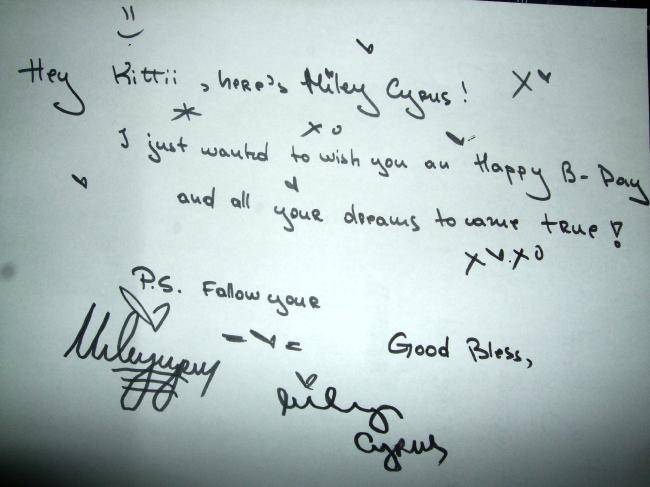 =)
Hey Kittii, here's Miley Cyrus! X
*
I just wanted to wish you an Happy B-Day
XO
and all your dreams to came true!
X.XO
P.S. Follow your
Good Bless,
Miley
Cyrus